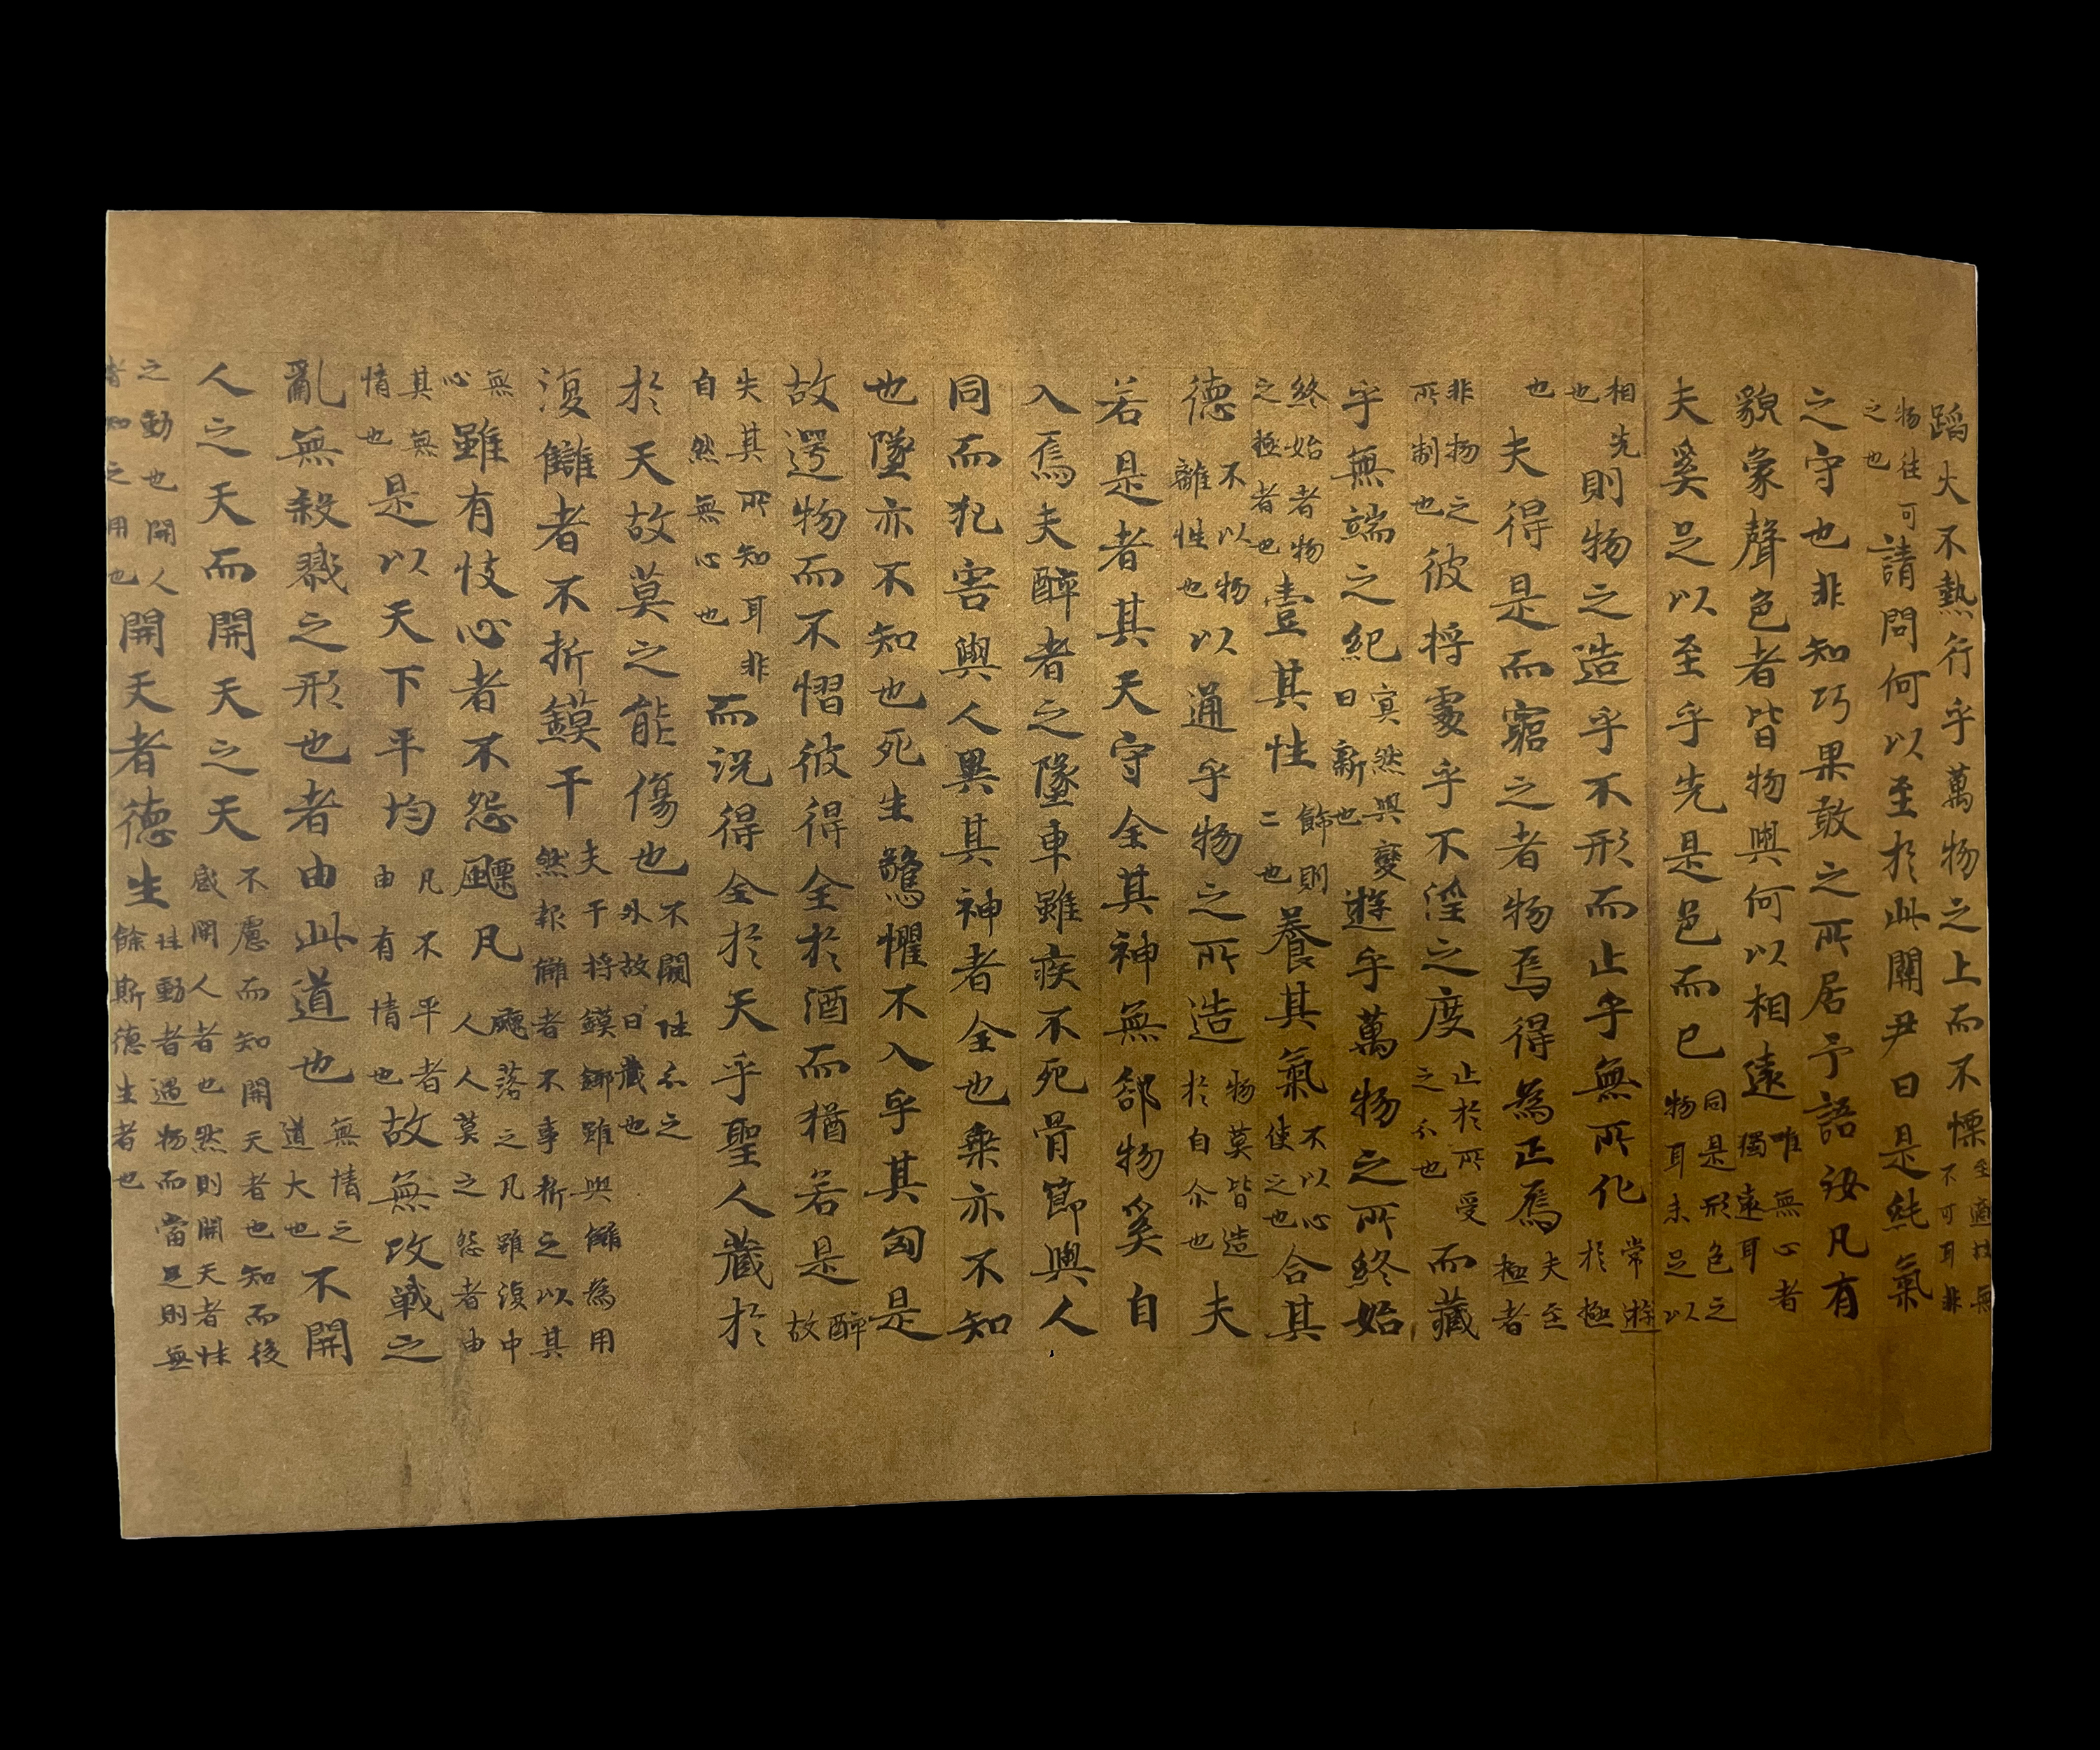 蹈火不熱行乎萬物之上而不慄至適故無不可耳非
物往可之也請問何以至於此關尹曰是純氣
之守也非知巧果敢之所居予語汝凡有
貌象聲色者皆物與何以相遠唯無心者獨遠耳
夫奚足以至乎先是色而已同是形色之物耳未足以
相先也則物之造乎不形而止乎無所化常遊於極
也夫得是而窮之者物焉得為正焉夫至極者
非物之所制也彼將處乎不淫之度止於所受之尒也而藏
乎無端之紀冥然與變日新也遊乎萬物之所終始
終始者物之極者也壹其性餙則二也養其氣不以心使之也合其
德不以物離性也以通乎物之所造物莫皆造於自尒也夫
若是者其天守全其神無郤物奚自
入焉夫醉者之墜車雖疾不死骨節與人
同而犯害與人異其神者全也乘亦不知
也墜亦不知也死生驚懼不入乎其匈是
故遻物而不慴彼得全於酒而猶若是醉故
失其所知耳非自然無心也而況得全於天乎聖人藏於
於天故莫之能傷也不闚性分之外故曰藏也
復讎者不折鏌干夫干將鏌鋣雖與讎為用然報讎者不事折之以其
無心雖有忮心者不怨飃凡飃落之凡雖復中人人莫之怨者由
其無情也是以天下平均凡不平者由有情也故無攻戰之
亂無殺戮之形也者由此道也無情之道大也不開
人之天而開天之天不慮而知開天者也知而後感開人者也然則開天者性
之動也開人者知之用也開天者德生性動者遇物而當足則無餘斯德生者也